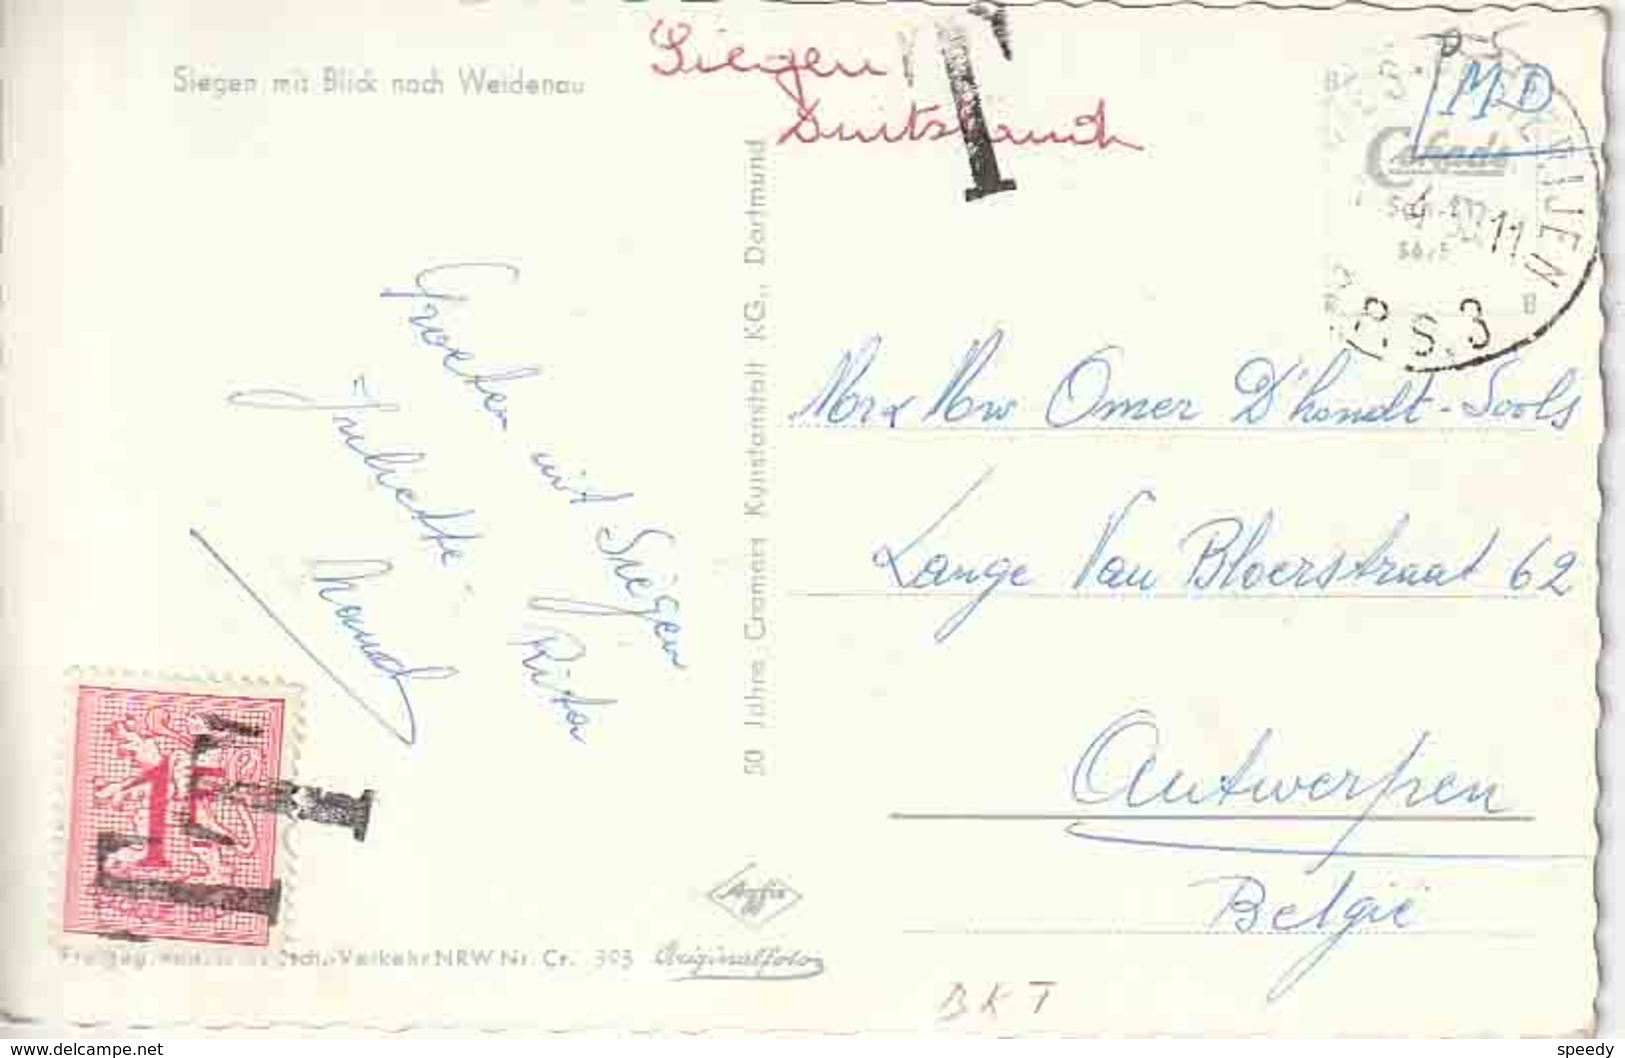 Siegen mit Blick nach Weidenau
Siegen
T
P.S.3
MD
11
50 Jahre Cramers Kunstanstalt KG., Dortmund
Groeten uit Siegen
Juliette Rita
Mr & Mw Omer D'hondt-Sools
Lange Van Bloerstraat 62
Antwerpen
België
1F
T
Agfa
Verkehr NRW Nr. Cr. 393
Originalfoto
BKT
www.delcampe.net
speedy